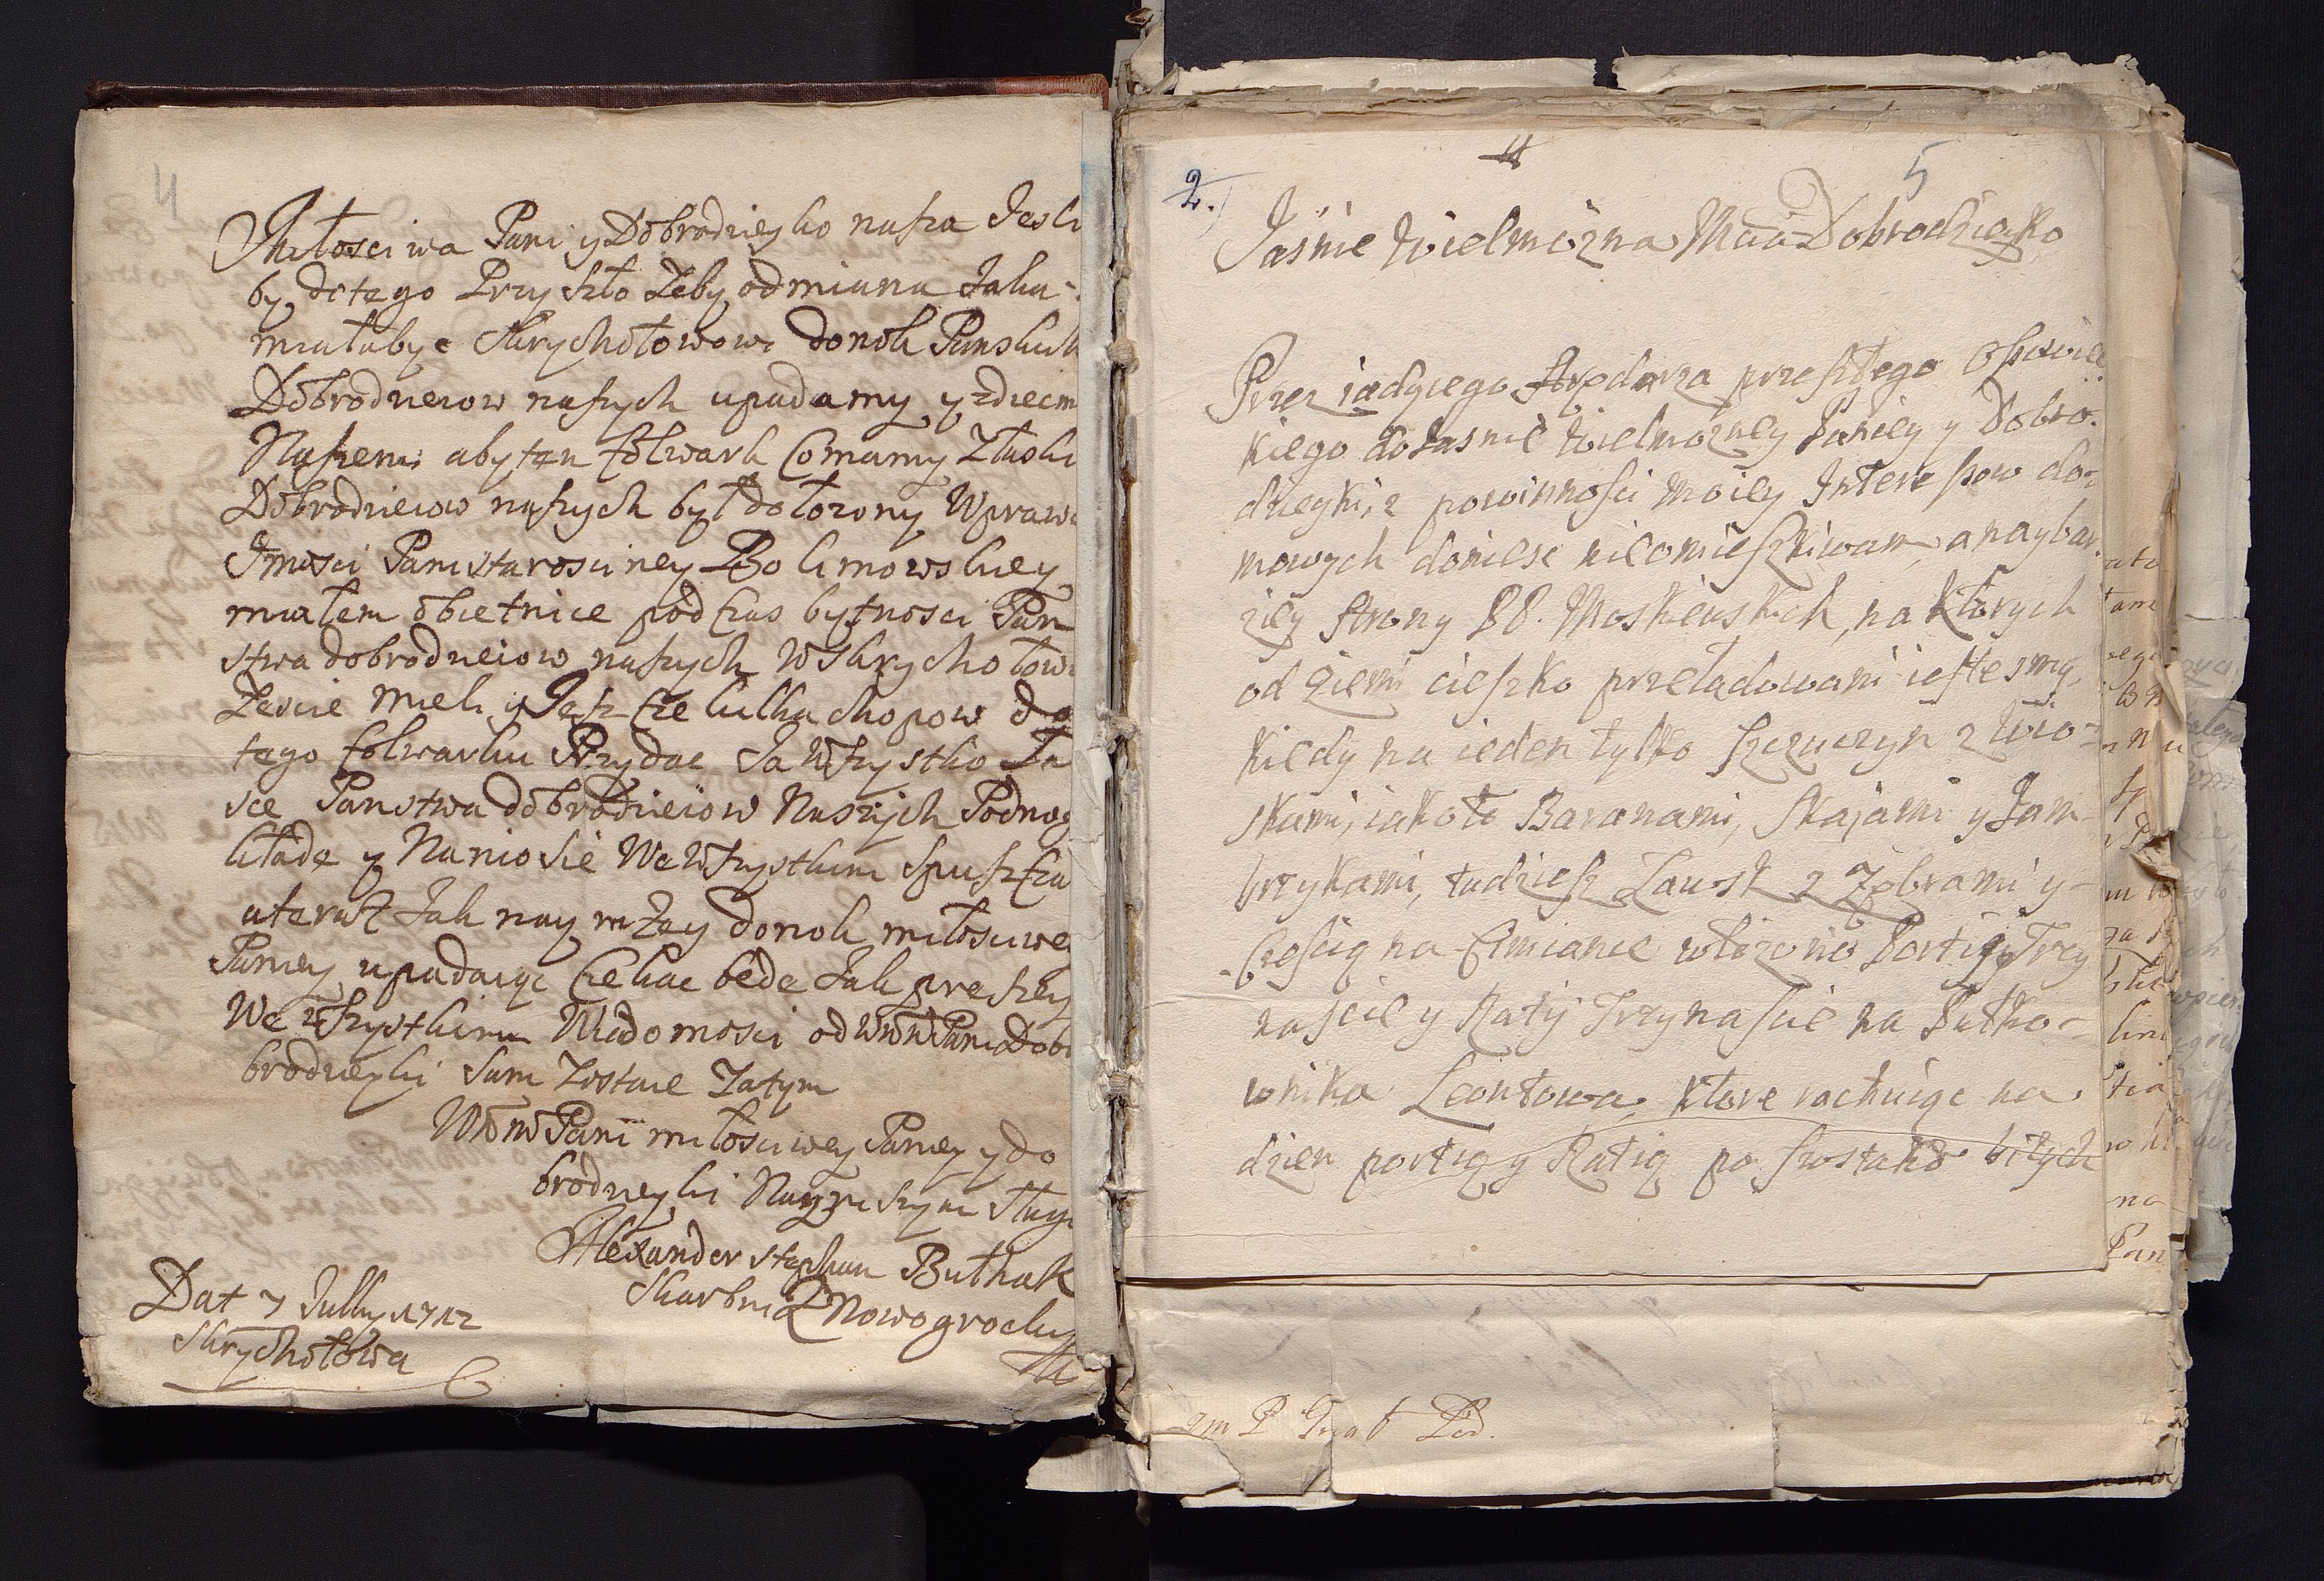 4
Miłosciwa Pani y Dobrodzieyko nasza Iesli
by dotego Przyszło Zeby odmiana Iaka
miałabyc Skrychołowowi donoh Panskich
Dobrodzieiow naszych upadamy y zdziecmi
Naszemi aby ten folwark Comamy Złaski
Dobrodzieiow naszych był dołozony Wprawie
Imosci Pani starosciney Bolimowskiey
miałem obietnice podczas bytnosci Pan
stwa dobrodzieiow naszych w Skrychołowie
Zescie mieli y Ieszcze kilka chopow do
tego folwarku Przydac Ia Wszystko Ła
sce Panstwa dobrodzieiow Naszych Podnogi
kładę y Nanio Sie We Wszystkim Spuszcza
ateraz Iak nay nizey donoh miłosciwey
Paniey upadaiąc Czekac będe Iak prętszey
We wszystkim Wiadomosci od WmWPani Dob
brodzieyki Sam Zostaie Zatym
WmWPani miłosciwey Paniey y do
brodzieyki Nayniszym sługą
Alexander stephan Buthak
Skarbnik Nowogrocky
Dat 7 Iully 1712
Skrychołowa
2.
5
Jaśnie Wielmozna Mcia Dobrodzieyko
Przez iadącego Arędarza przeszłego
kiego do Jasnie Wielmozney Paniey y Dobro-
dzieyki, z powinnosci moiey Interessow do-
mowych doniesc nieomieszkiwam, a naybar-
ziey strony PP. Moskiewskich, na ktorych
od ziemi cieszko przeładowani iestesmy,
kiedy na ieden tylko Szczuczyn z wio-
skami, iakoto Baranami, Skajami y Jam-
brzykami, tudziesz Ławsk z Zebrami y
Częscią na Cimianie włozono Portiy Trzy
nascie y Ratiy Trzynascie na Pułko-
wnika Leontowa, ktore rachuiąc na
dzien portią y Ratią po szostaku bitych